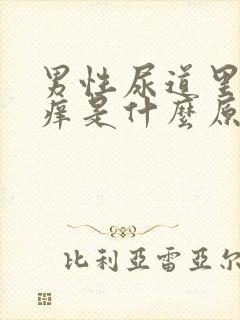 男性尿道里
痒是什麼原
比利亞雷亞尔